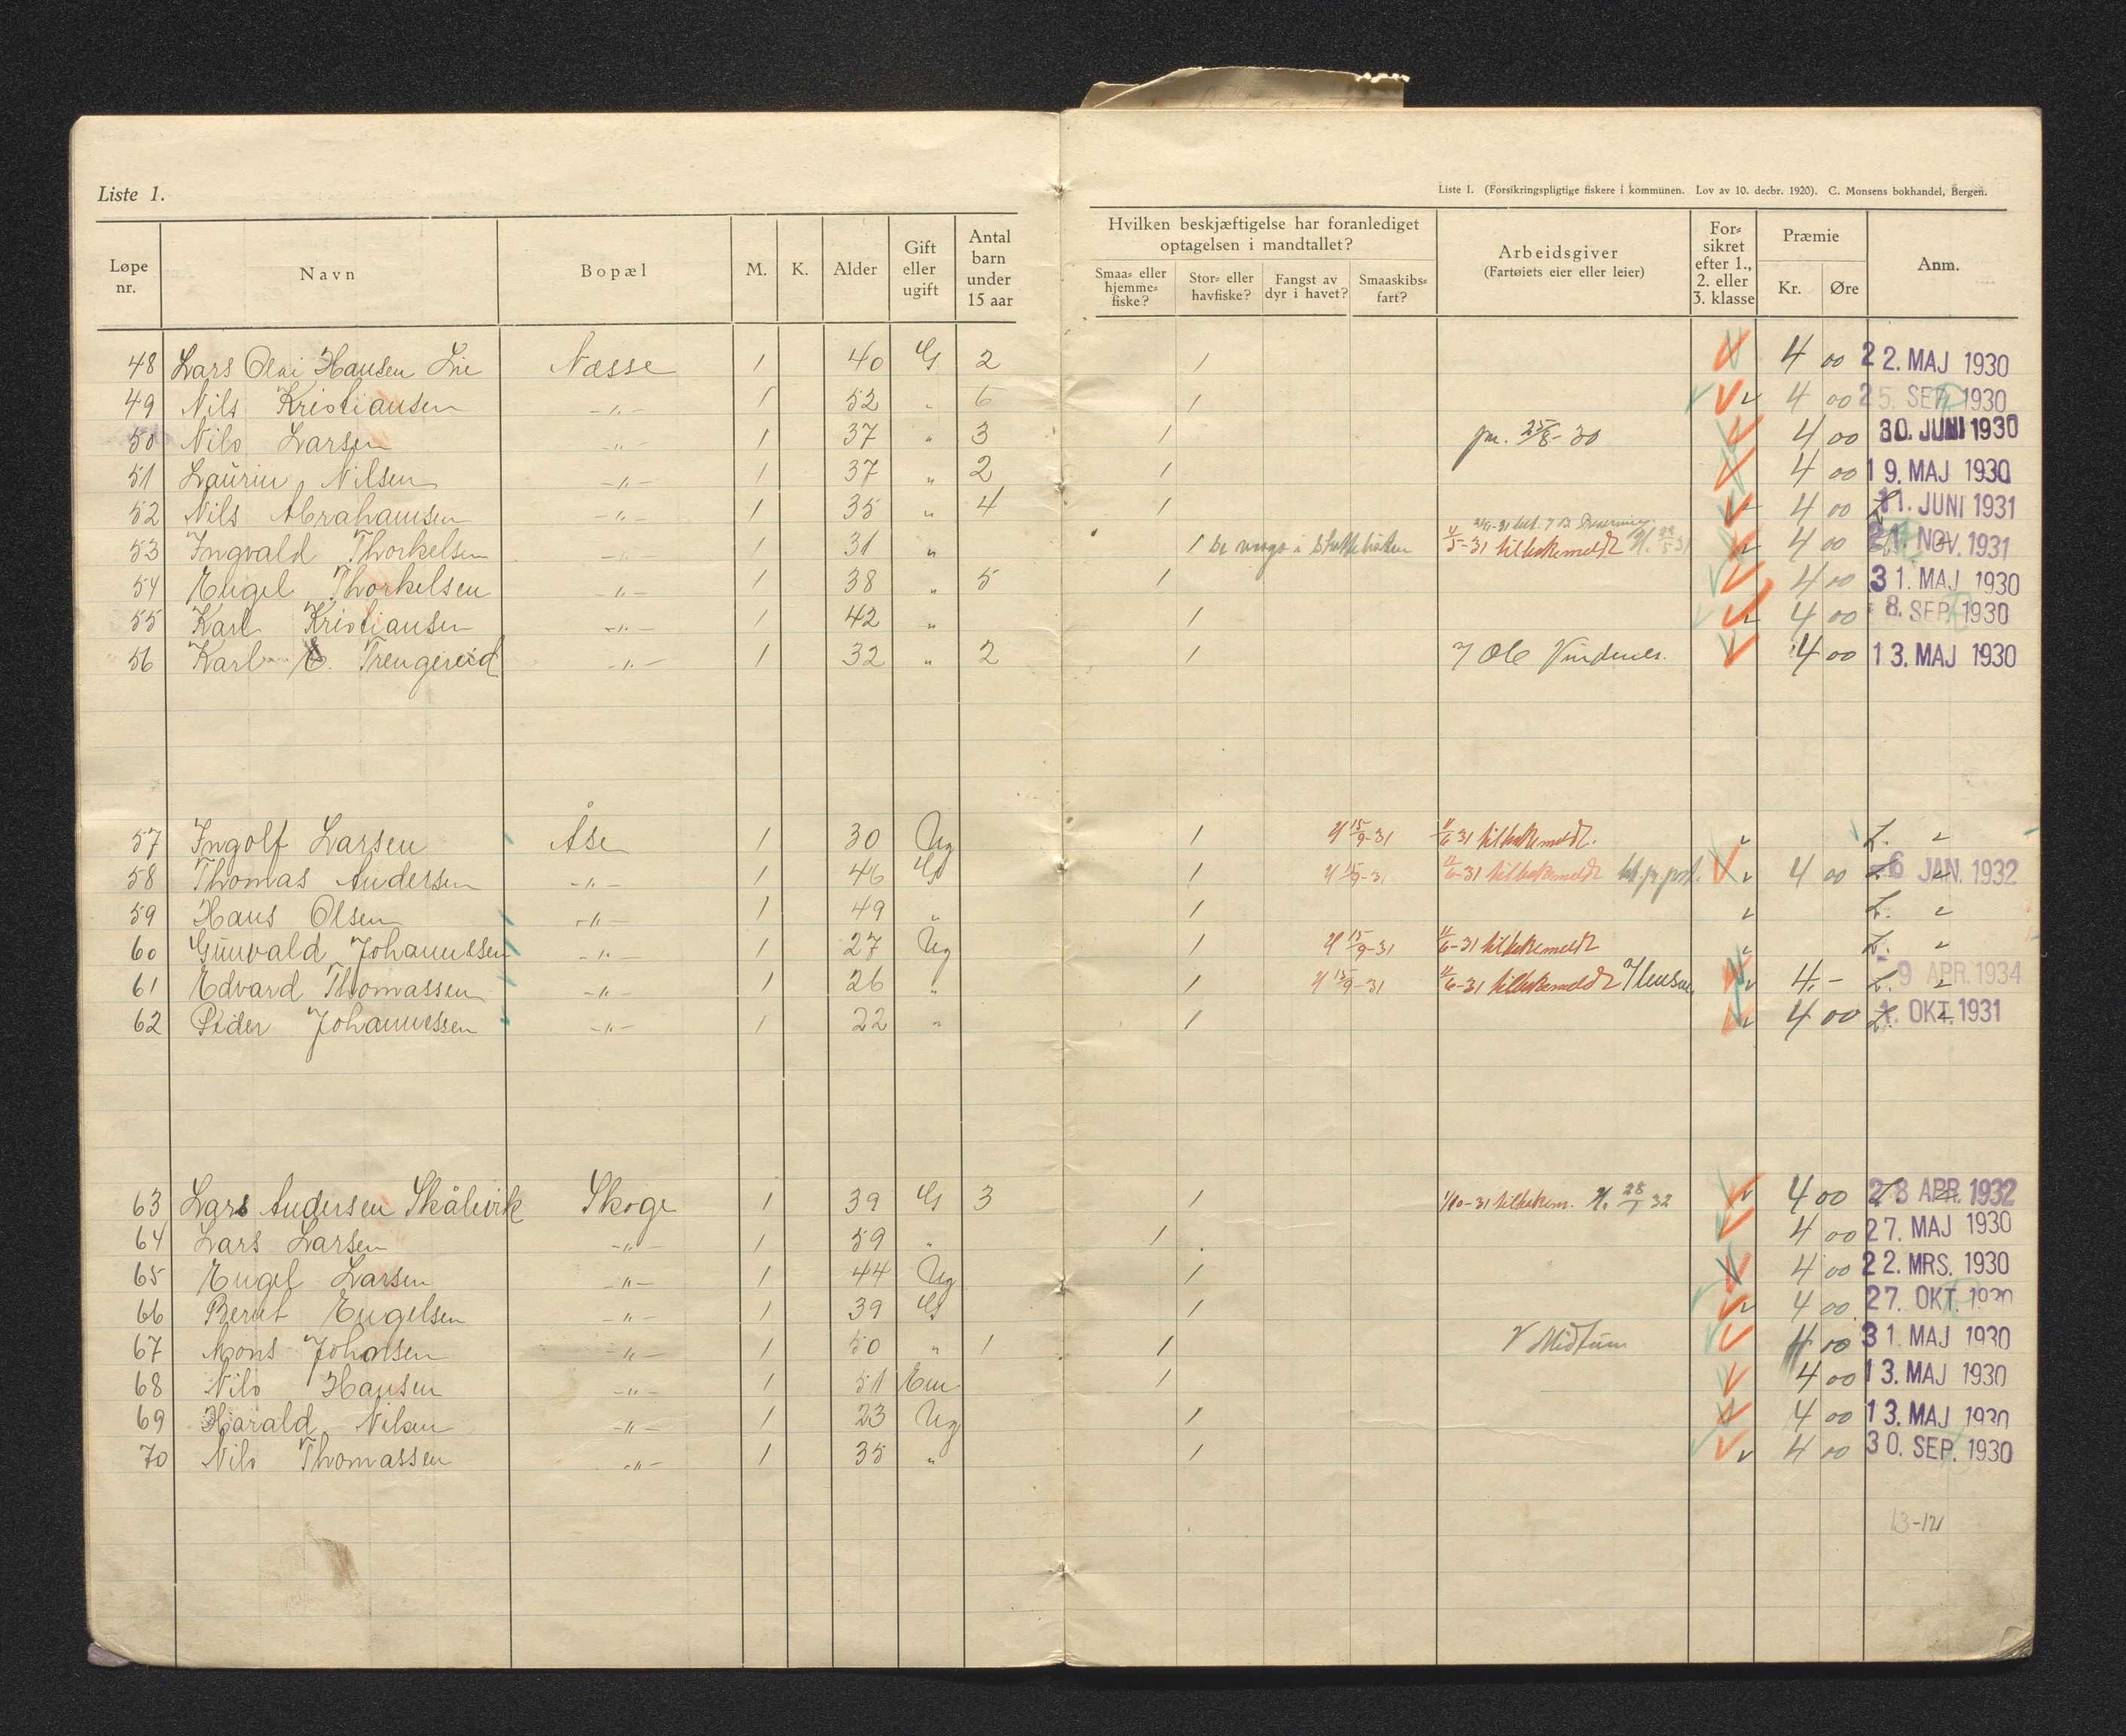 Liste 1.
Liste I. (Forsikringspligtige fiskere i kommunen. Lov av 10. decbr. 1920). C. Monsens bokhandel, Bergen.
Løpe nr. Navn Bopæl M. K. Alder Gift eller ugift Antal barn under 15 aar Hvilken beskjæftigelse har foranlediget optagelsen i mandtallet? Smaa- eller hjemme-fiske? Stor- eller havfiske? Fangst av dyr i havet? Smaaskibs-fart? Arbeidsgiver (Fartøiets eier eller leier) For-sikret efter 1., 2. eller 3. klasse Præmie Kr. Øre Anm.
48 Lars Olai Hansen Lie Næsse 1 40 G 2 1 4 00 22. MAJ 1930
49 Nils Kristiansen -"- 1 52 " 6 1 4 00 25. SEP. 1930
50 Nils Larsen -"- 1 37 " 3 1 pr. 25/8-30 4 00 30. JUNI 1930
51 Laurin Nilsen -"- 1 37 " 2 1 4 00 19. MAJ 1930
52 Nils Abrahamsen -"- 1 35 " 4 1 4 00 11. JUNI 1931
53 Ingvald Thorkelsen -"- 1 31 " 1 5-31 tilbakemeldt 4 00 21. NOV. 1931
54 Engel Thorkelsen -"- 1 38 " 5 1 4 00 31. MAJ 1930
55 Karl Kristiansen -"- 1 42 " 1 4 00 8. SEP. 1930
56 Karl Trengereid -"- 1 32 " 2 1 Ole Vindenes. 4 00 13. MAJ 1930
57 Ingolf Larsen Åse 1 30 Ug 1 15/9-31 11/6 31 tilbakemeldt. L.
58 Thomas Andersen -"- 1 46 G 1 15/9-31 11/6-31 tilbakemeldt 4 00 6 JAN. 1932
59 Hans Olsen -"- 1 49 " 1 L.
60 Gunvald Johannessen -"- 1 27 Ug 1 15/9-31 11/6-31 tilbakemeldt L.
61 Edvard Thomassen -"- 1 26 " 1 15/9-31 11/6-31 tilbakemeldt 4.- L. 9 APR. 1934
62 Peder Johannessen -"- 1 22 " 1 4 00 1. OKT. 1931
63 Lars Andersen Skålevik Skoge 1 39 G 3 1 1/10-31 tilbakem. 28/1 32 4 00 28 APR. 1932
64 Lars Larsen -"- 1 59 " 1 4 00 27. MAJ 1930
65 Engel Larsen -"- 1 44 Ug 1 4 00 22. MRS. 1930
66 Bernt Engelsen -"- 1 39 G 1 4 00 27. OKT. 1930
67 Mons Johnsen -"- 1 50 " 1 1 Midtun 4 00 31. MAJ 1930
68 Nils Hansen -"- 1 51 Em 1 4 00 13. MAJ 1930
69 Harald Nilsen -"- 1 23 Ug 1 4 00 13. MAJ 1930
70 Nils Thomassen -"- 1 35 " 1 4 00 30. SEP. 1930